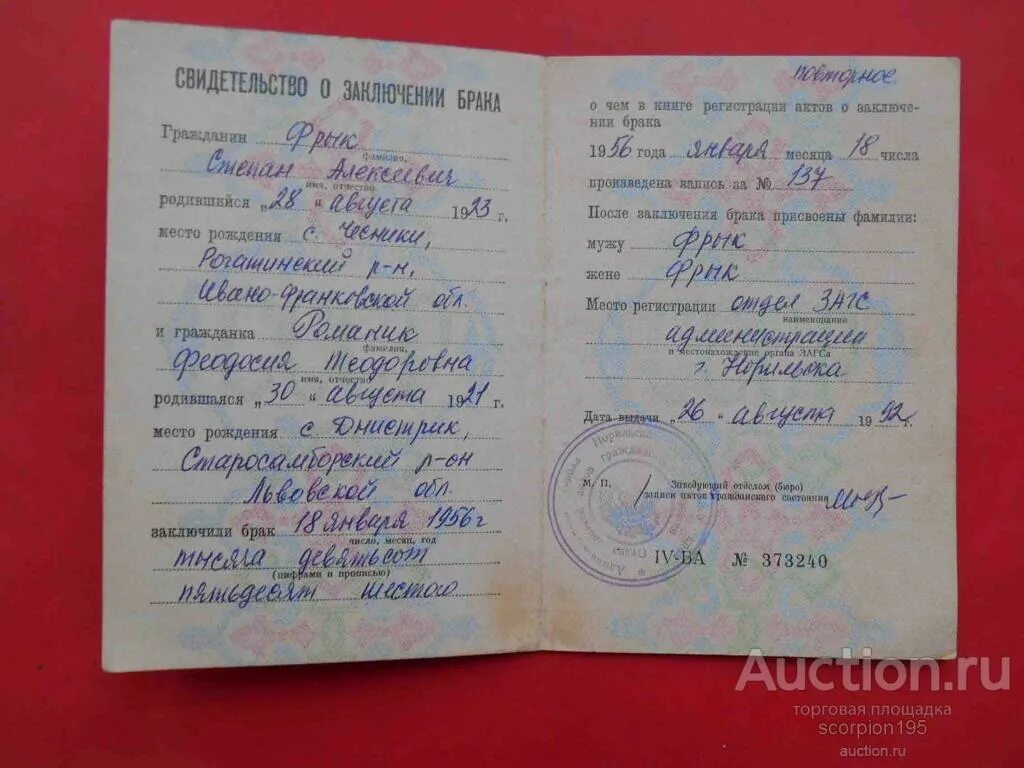 СВИДЕТЕЛЬСТВО О ЗАКЛЮЧЕНИИ БРАКА
Гражданин Фрык
фамилия,
Степан Алексеевич
имя, отчество
родившийся „28 " августа 1923 г.
место рождения с. Чесники,
Рогатинский р-н,
Ивано-Франковской обл.
и гражданка Романик
фамилия,
Феодосия Теодоровна
имя, отчество
родившаяся „30 " августа 1921 г.
место рождения с Днистрик,
Старосамборский р-он
Львовской обл.
заключили брак 18 января 1956 г
число, месяц, год
тысяга девятьсот
(цифрами и прописью)
пятьдесят шестого
повторное
о чем в книге регистрации актов о заключе-
нии брака
1956 года января месяца 18 числа
произведена запись за № 137
После заключения брака присвоены фамилии:
мужу Фрык
жене Фрык
Место регистрации отдел ЗАГС
наименование
администрации
и местонахождение органа ЗАГСа
г. Норильска
Дата выдачи „26 " августа 1992 г.
М. П. Заведующий отделом (бюро)
записи актов гражданского состояния
IV-БА № 373240
Auction.ru
торговая площадка
scorpion195
auction.ru